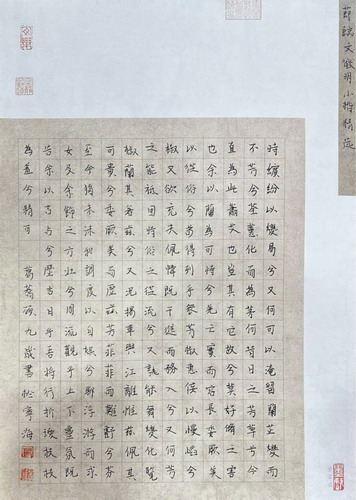 文徵明小楷精
時繽紛以變易兮又何可以淹留蘭芷變而
不芳兮荃蕙化而為茅何昔日之芳草兮今
直為此蕭艾也豈其有它故兮莫好脩之害
也余以蘭為可恃兮羌無實而容長委厥美
以從俗兮苟得列乎眾芳椒專佞以慢慆兮
樧又欲充夫佩幃既干進而務入兮又何芳
之能祗固時俗之從流兮又孰能無變化覽
椒蘭其若茲兮又況揭車與江離惟茲佩其
可貴兮委厥美而歷茲芳菲菲而難虧兮芬
至今猶未沬和調度以自娛兮聊浮游而求
女及余飾之方壯兮周流觀乎上下靈氛既
告余以吉占兮歷吉日乎吾將行折瓊枝
為羞兮精 九歲書於寧海